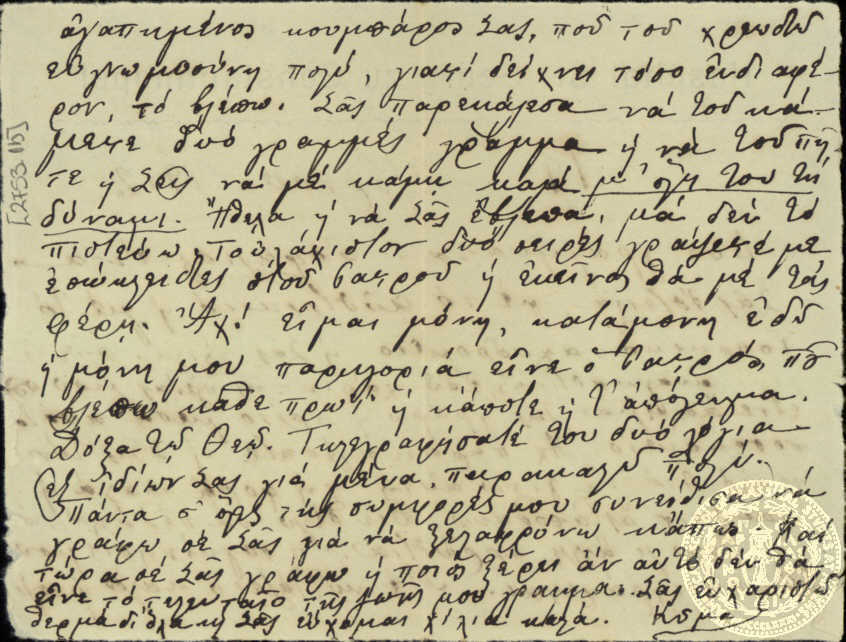 ἀγαπημένος κουμπάρος Σας, ποῦ τοῦ χρεωστῶ
εὐγνωμοσύνη πολύ, γιατί δείχνει τόσο ἐνδιαφέ-
ρον, τό βλέπω. Σᾶς παρεκάλεσα νά τοῦ κά-
μετε δυό γραμμές γράμμα ἤ νά τοῦ πῆ-
τε ἤ Σεῖς νά μέ κάμῃ καλά μ' ὅλη του τή
δύναμι. Ἤθελα ἤ νά Σᾶς ἔβλεπα, μά δέν τό
πιστεύω, τοὐλάχιστον δυό σειρές γράψετέ με
ἐσώκλειστες στοῦ Γιατροῦ ἤ ἐκεῖνος θά μέ τές
φέρῃ. Ἄχ! εἶμαι μόνη, κατάμονη ἐδῶ
ἡ μόνη μου παρηγοριά εἶνε ὁ Γιατρός, ποῦ
βλέπω κάθε πρωΐ ἤ κάποτε ἤ τ' ἀπόγευμα.
Δόξα τῷ Θεῷ. Τηλεγραφήσατέ του δυό λόγια
ἐξ ἰδίων Σας γιά μένα, παρακαλῶ πολύ.
Πάντα σ' ὅλες τές συμφορές μου συνείθισα νά
γράφω σέ Σᾶς γιά νά ξελαφρόνω κάπως. Καί
τώρα σέ Σᾶς γράφω ἤ ποιός ξέρει ἄν αὐτό δέν θά
εἶνε τό τελευταῖο τῆς ζωῆς μου γράμμα. Σᾶς εὐχαριστῶ
θερμά δι' ὅλα ἤ Σᾶς εὔχομαι χίλια καλά.
[2753 (15)]